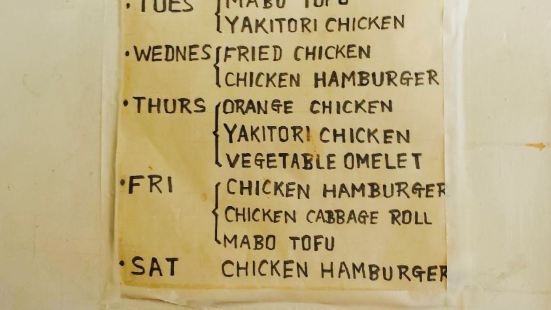 · TUES { MABO TOFU
YAKITORI CHICKEN
· WEDNES { FRIED CHICKEN
CHICKEN HAMBURGER
· THURS { ORANGE CHICKEN
YAKITORI CHICKEN
VEGETABLE OMELET
· FRI { CHICKEN HAMBURGER
CHICKEN CABBAGE ROLL
MABO TOFU
· SAT CHICKEN HAMBURGER